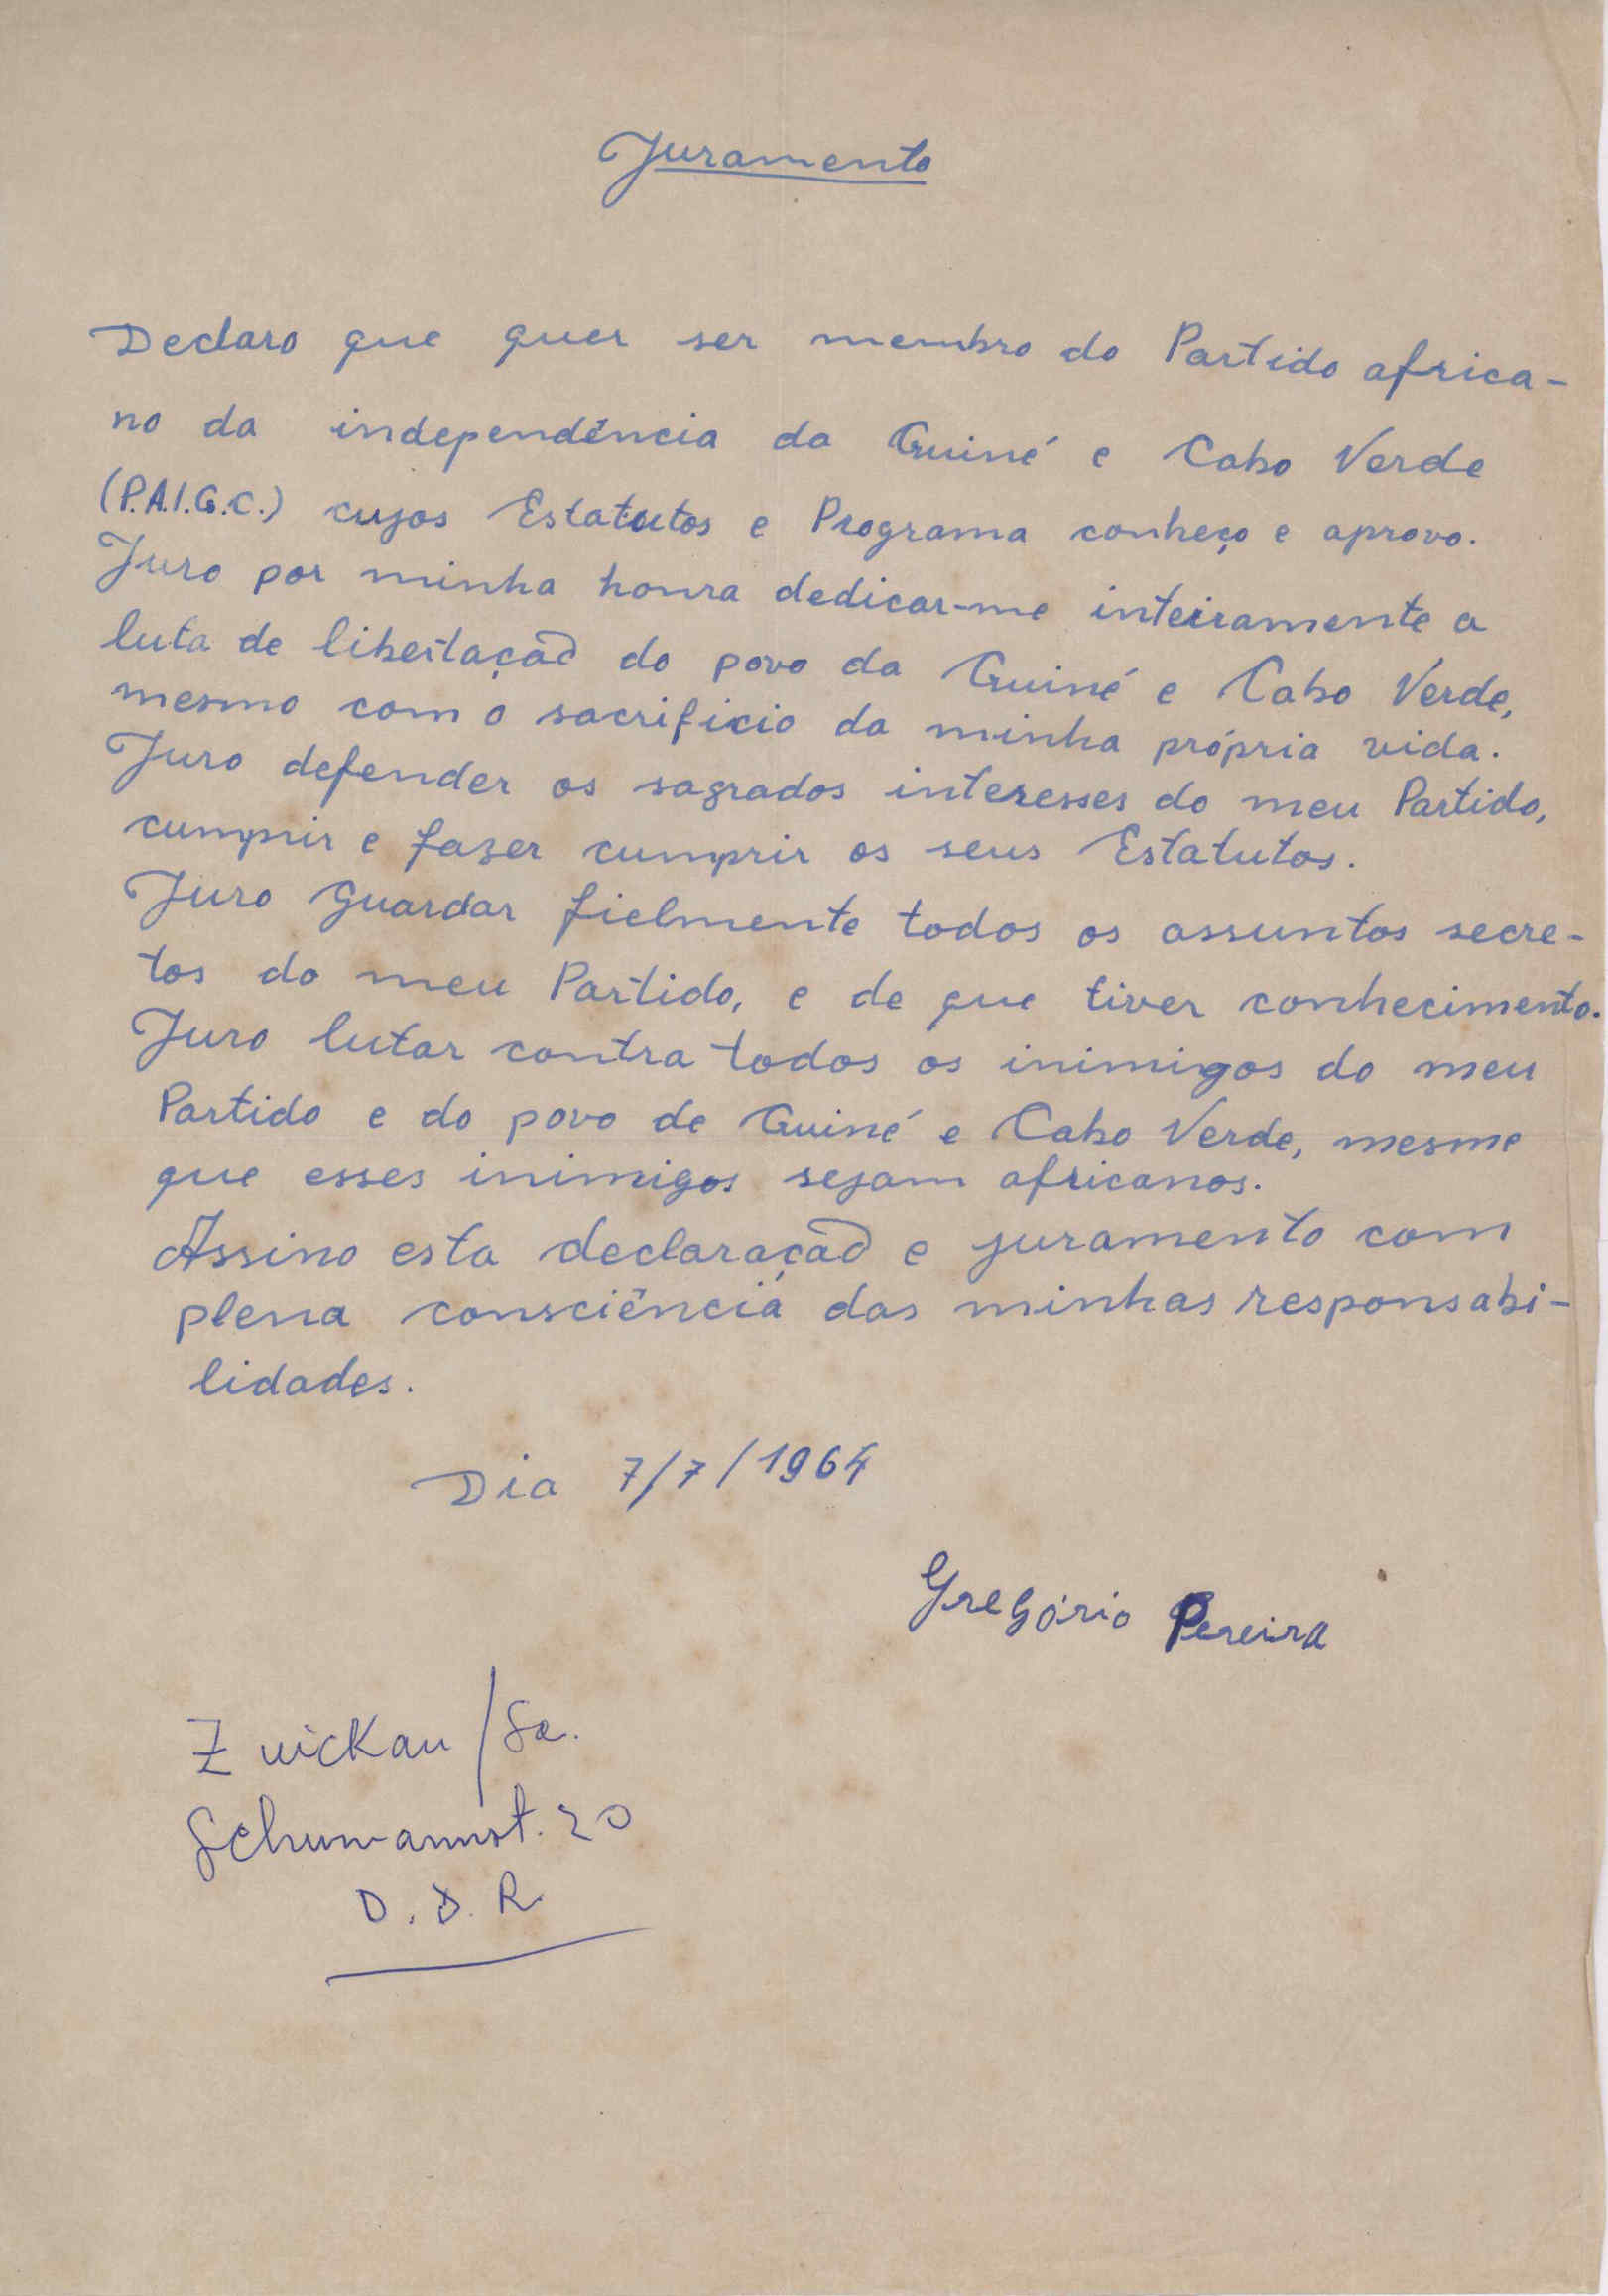 Juramento
Declaro que quer ser membro do Partido africa-
no da independência da Guiné e Cabo Verde
(P.A.I.G.C.) cujos Estatutos e Programa conheço e aprovo.
Juro por minha honra dedicar-me inteiramente a
luta de libertação do povo da Guiné e Cabo Verde,
mesmo com o sacrificio da minha própria vida.
Juro defender os sagrados interesses do meu Partido,
cumprir e fazer cumprir os seus Estatutos.
Juro guardar fielmente todos os assuntos secre-
tos do meu Partido, e de que tiver conhecimento.
Juro lutar contra todos os inimigos do meu
Partido e do povo de Guiné e Cabo Verde, mesme
que esses inimigos sejam africanos.
Assino esta declaração e juramento com
plena consciência das minhas responsabi-
lidades.
Dia 7/7/1964
Gregório Pereira
Zwickau/Sa.
Schumannst. 20
D.D.R